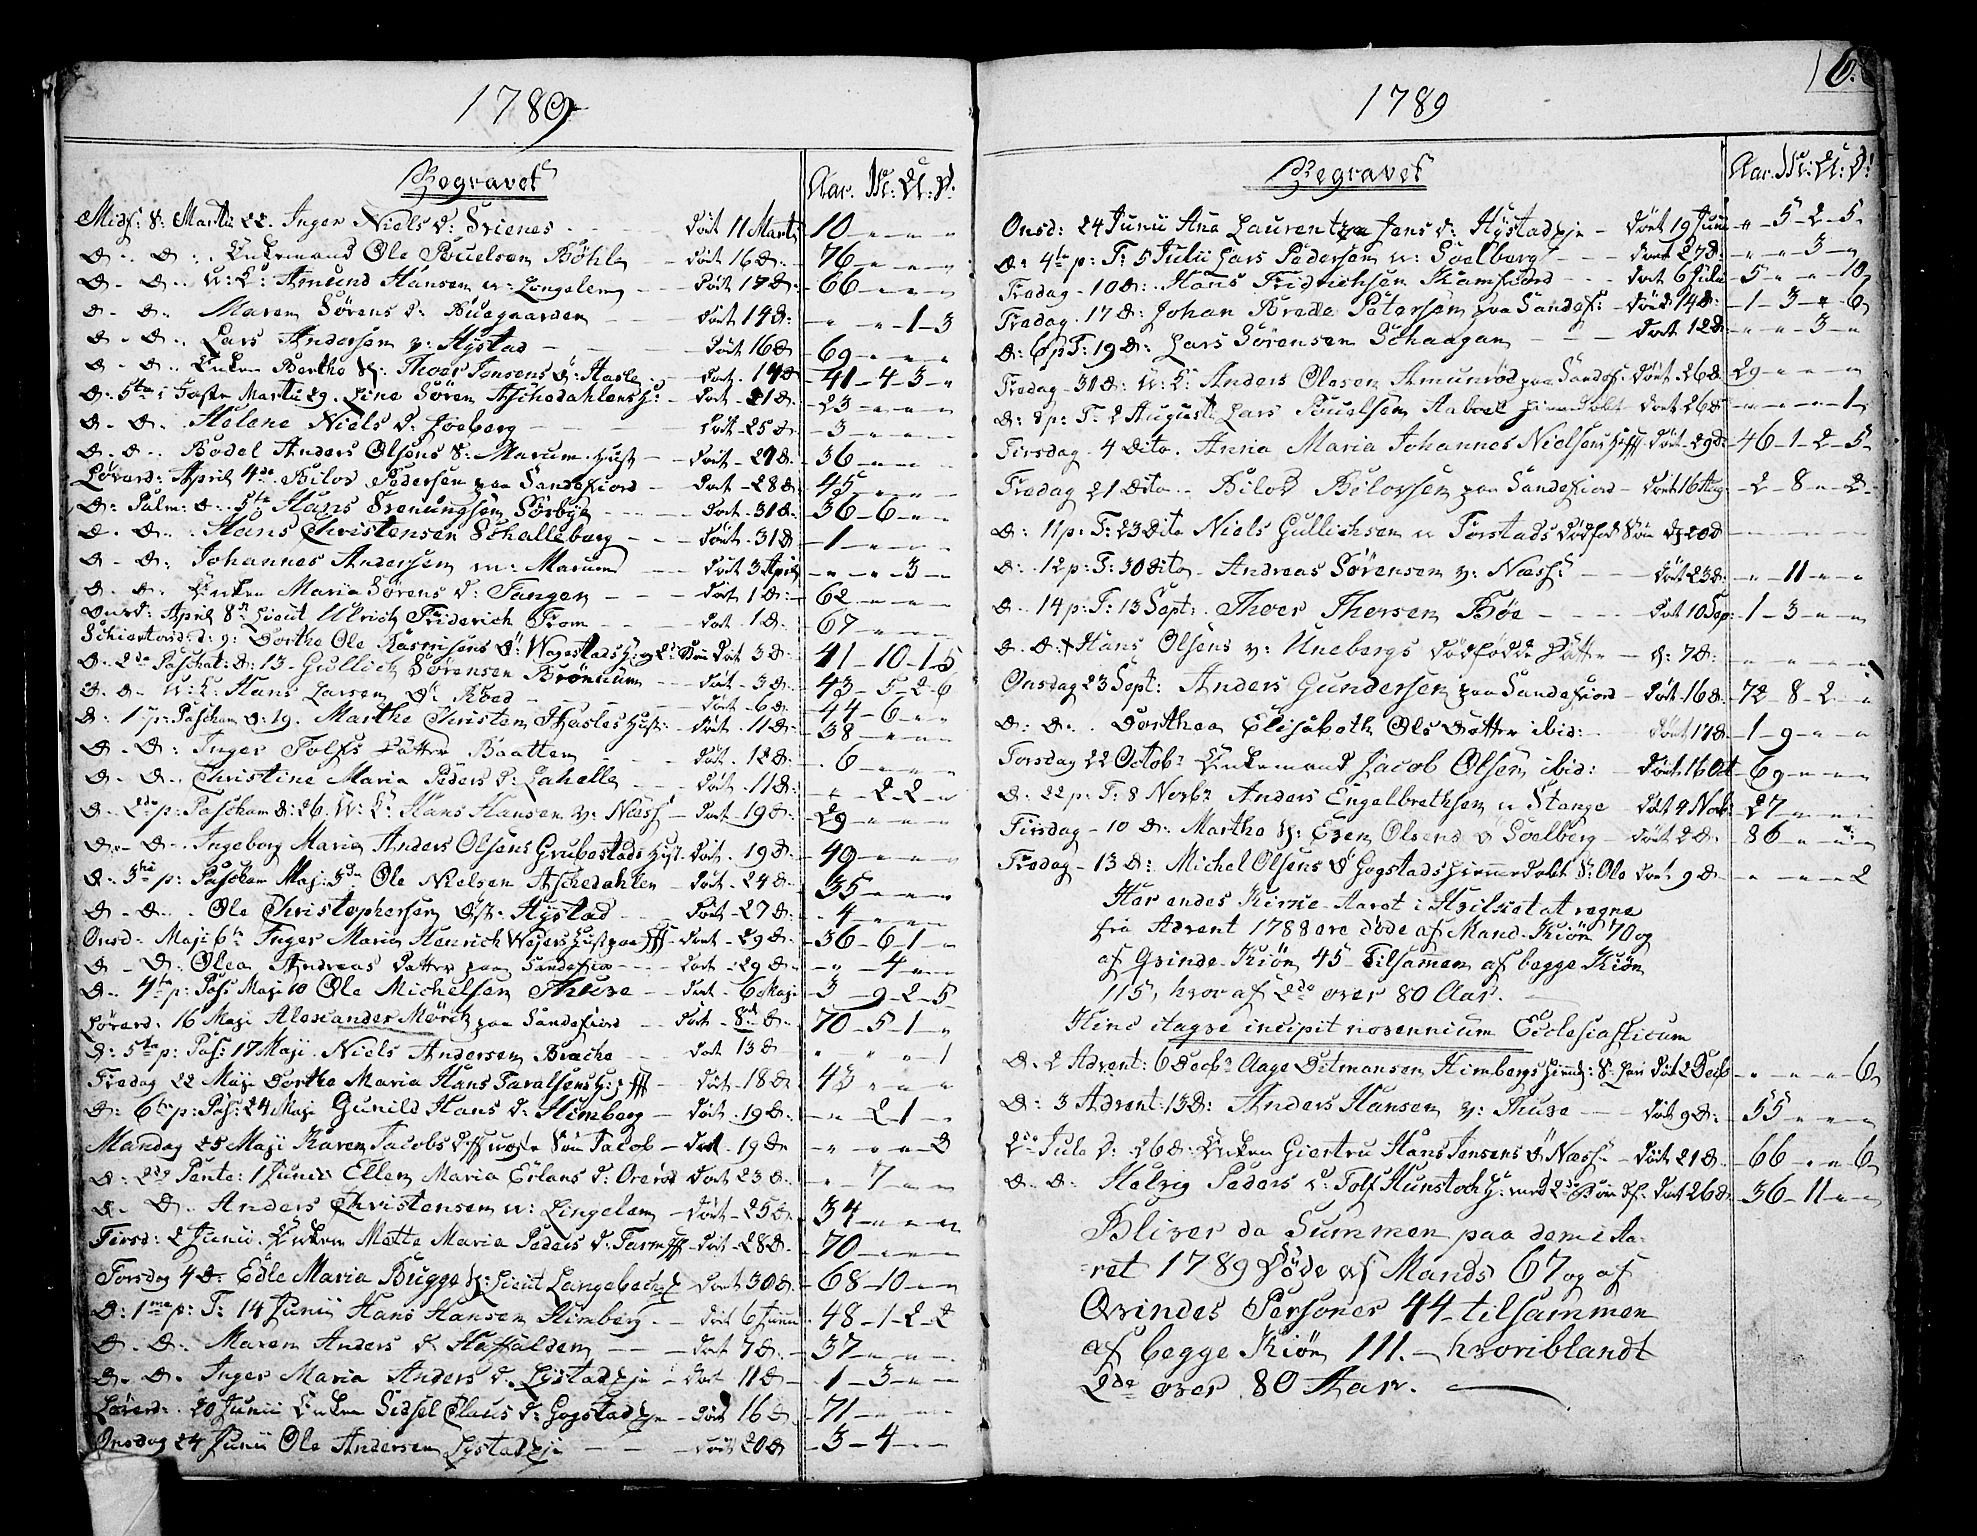 1789
Begravet
Aar. M: U: D:
Midf: S: Martii 22. Inger Niels D: Svienes Døt 11 Martii 10
D. D. Enkemand Ole Pouelsen Böhle Døt 16 D. 76
D. D. u: K: Amund Hansen u: Lingelem Døt 17 D: 66
D. D. Maren Sörens D. Buegaarden Døt 14 D: 1-3
D. D. Lars Andersen v: Hÿstad Døt 16 D 69
D. D. Enken Berthe Thoer Jensens Ö: Hasle Døt. 14 D 41-4-3
D. 5te i Faste Martii 29. Line Sören Aschedahlens H: Døt 21 D. 23
D. D. Helene Niels D. Joeberg Døt 25 D 3
D. D. Bodel Anders Olsens S. Marum Hust Døt 27 D. 36
Löverd: April 4de Bilov Pedersen paa Sandefiord Døt 28 D: 45
D: Palm: D: 5te Hans Svenungsen Sörbÿe Døt 31 D: 36-6
D. D. Hans Christensen Schalleberg Døt 31 D 1
D. D. Johannes Andersen u: Marum Døt 3 April 3
D. D. Enken Maria Sörens D: Tangen Døt 1 D: 62
Onsd: April 8de Lieut Ulrich Friderich From Døt 1 D. 67
Schiertorsd: 9: Dorthe Ole Rasmusens Ö: Wegestads H: Døt 3 D. 41-10-1-5
D. 2de Paschat: D: 13 Gullich Sörensen Brönnum Døt 3 D. 43-5-2-6
D. D. u: K: Hans Larsen Døt 6 D: 44-6
D. 1 p: Pascham D: 19. Marthe Christen Hasles Hust: Døt 11 D: 38
D. D: Inger Tolfs Datter Baatten Døt. 12 D: 6
D. D. Christine Maria Peders D: Lahelle Døt 11 D: 2-2
D. 2de p: Pascham D: 26. u: K: Hans Hansen v: Næss Døt 19 D: 29
D. D. Ingeborg Maria Anders Olsens Grubestads Hust Døt. 19 D: 49
D. 3tie p: Pascham Maji 3de Ole Nielsen Aschedahlen Døt. 24 D. 35
D. D. Ole Christophersen Øst. Hÿstad Døt 27 D: 4
Onsd: Maji 6te Inger Maria Henrich Wejers Hust paa Døt 29 D: 36-6-1
D. D: Olea Andreas Datter paa Sandefior Døt 29 D. 4
D. 4te p: Pas: Maji 10 Ole Michelsen Thuve Døt 6 Maji 3-9-2-5
Löverd: 16 Maji Alexander Mörch paa Sandefiord Døt 8de D: 70-5-1
D: 5te p: Pas: 17 Maji. Niels Andersen Døt 13 D 1
Fredag 22 Maji Dorthe Maria Hans H: p Døt 18 D: 43
D: 6te p: Pas: 24 Maji Gunild Hans D: Himberg Døt 19 D: 2-1
Mandag 25 Maji Karen Jacobs Sön Jacob Døt 19 D 3
D: 2de Pente: 1 Junii Ellen Maria Erlans D: Oreröd Døt 23 D. 7
D. D. Anders Christensen u: Lingelem Døt 25 D: 34
Tirsd: 2 Junii. Enken Mette Maria Peders D. Døt 28 D. 70
Torsdag 4 D: Edle Maria Bugge Lieut Langebechs Døt 30 D 68-10
D: 1me p: T: 14 Junii Hans Hansen Himberg Døt 6 Junii 48-1-2-2
D. D. Maren Anders D Hassalden Døt 7 D. 37
D. D. Inger Maria Anders D. Lÿstad Døt 11 D 1-3
Löverd: 20 Junii Enken Sidsel Claus D: Gogstad Døt 16 D 71
Onsdag 24 Junii Ole Andersen Lÿstad Døt 20 D 3-4
1789
16.
Begravet
Aar. M: U: D:
Onsd: 24 Junii Ana Laurentze Jens D: Hÿstad Døt 19 Junii 5-2-5
D: 4te p: T: 5 Julii Lars Pedersen u: Soelberg Døt 27 D: 3
Fredag 10 D: Hans Fridrichsen Kamfiord Døt 6 Julii 5 10
Fredag 17 D: Johan Brede Petersen paa Sandef: Død 14 D: 1-3 6
D: 6 p T: 19 D: Lars Sörensen Døt 12 D 3
Fredag 31 D: u: K: Anders Olesen Amunröd paa Sandef: Døt 26 D: 29
D: 8 p: T: 2 Augusti Lars Pouelsen Aaboel hiemedøbt Døt 26 D 1
Tirsdag 4 Dito. Anna Maria Johannes Nielsens Døt 29 D: 46-1-2-5
Fredag 21 Dito. Bilov Bilovsen paa Sandefiord Døt 16 Aug: 2-8 2
D: 11 p: T: 23 Dito Niels Gullichsen u Torstads dödfød Sön D 20 D
D: 12 p: T: 30 Dito Andreas Sörensen v: Næss: Døt 23 D: 11
D: 14 p: T: 13 Sept: Thoer Thorsen Böe Døt 10 Sep: 1-3
D. D. Hans Olsens v: Unebergs dödfødde Datter D: 7 D:
Onsdag 23 Sept: Anders Gundersen paa Sandefiord Døt 16 D: 72-8-2
D: D: Dorthea Elisabeth Ols Datter ibid: Døt 17 D 1-9
Torsdag 22 Octobr Enkemand Jacob Olsen ibid: Døt 16 Oct 69
D. 22 p: T: 8 Novbr Anders Engelbrethsen u Stange Døt 4 Novb: 27
Tirsdag 10 D: Marthe Even Olsens Ö Soelberg Døt 2 D: 86
Fredag 13 D: Michel Olsens Ö Gogstads hiemedøbt S: Ole Døt 9 D 2
Her endes Kirke-Aaret i Hvilket at regne
fra Advent 1788 ere døde af Mand-Kiön 70 og
af Qvinde-Kiön 45 Tilsammen af begge Kiön
115, hvor af 2de over 80 Aar.
Hinc itaqve incipit novennium Ecclesiasticum
D. 2 Advent: 6 Decbr Aage Ditmansen Himbergs hiemd: S: Døt 2 Decb 6
D: 3 Advent: 13 D: Anders Hansen v: Thuve Døt 9 D: 55
2de Jule D: 26 D: Enken Giertru Hans Jensens Ö Næss: Døt 21 D. 66 6
D. D: Helvig Peders D: Tolf Hunstoch H: med 2de Døt 26 D: 36-11
Bliver da Summen paa dem i Aa-
ret 1789 Døde af Mands 67 og af
Qvindes Personer 44 tilsammen
af begge Kiön 111. hvoriblandt
2de over 80 Aar.